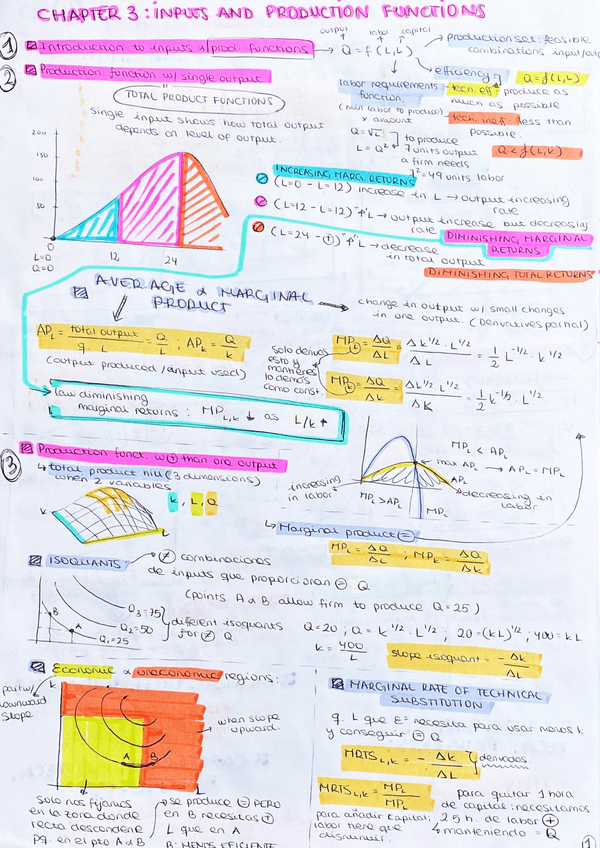 CHAPTER 3: INPUTS AND PRODUCTION FUNCTIONS
1
Introduction to inputs & prod. functions → Q = f(L,K)
output labor capital
production set: feasible
combinations input/output
efficiency
Q = f(L,K)
tech. eff: produce as
much as possible
tech. ineff: less than
possible.
Q < f(L,K)
labor requirements
function.
(min labor to produce)
x amount
Q = √L
L = Q²
to produce
7 units output
a firm needs
7² = 49 units labor
2
Production function w/ single output
TOTAL PRODUCT FUNCTIONS
Single input shows how total output
depends on level of output.
200
150
100
50
0
L=0
Q=0
12
24
INCREASING MARG. RETURNS
(L=0 - L=12) increase in L → output increasing
rate
(L=12 - L=12) "↑"L → output increase but decreasing
rate
DIMINISHING MARGINAL
RETURNS
(L=24 - +) "↑"L → decrease
in total output
DIMINISHING TOTAL RETURNS
AVERAGE & MARGINAL
PRODUCT
→ change in output w/ small changes
in one output. (Derivatives partial)
AP_L = total output / q. L = Q/L ; AP_K = Q/K
(output produced / input used)
solo derivas
esto y
mantienes
lo demás
como const.
MP_L = ΔQ/ΔL = ΔK^1/2 · L^1/2 / ΔL = 1/2 L^-1/2 · K^1/2
MP_K = ΔQ/ΔK = ΔL^1/2 · K^1/2 / ΔK = 1/2 K^-1/2 · L^1/2
law diminishing
marginal returns: MP_L,K ↓ as L/K ↑
3
Production funct. w/ + than one output
↳ total product hill (3 dimensions)
when 2 variables
K, L, Q
K
L
MP_L < AP_L
max AP_L → AP_L = MP_L
AP_L
increasing
in labor
MP_L > AP_L
MP_L
decreasing in
labor
↳ Marginal product =
MP_L = ΔQ/ΔL ; MP_K = ΔQ/ΔK
ISOQUANTS → ≠ combinaciones
de inputs que proporcionan = Q
(points A & B allow firm to produce Q = 25)
B
A
Q3 = 75
Q2 = 50
Q1 = 25
different isoquants
for ≠ Q
Q = 20 ; Q = K^1/2 · L^1/2 ; 20 = (KL)^1/2 ; 400 = KL
K = 400/L
slope isoquant = - ΔK/ΔL
Economic & uneconomic regions:
K
downward
slope
when slope
upward.
A
B
L
Solo nos fijamos
en la zona donde
recta desciende
pq. en el pto A & B
→ se produce = PERO
en B necesitas +
L que en A
B: MENOS EFICIENTE
MARGINAL RATE OF TECHNICAL
SUBSTITUTION
q. L que Eª necesita para usar menos K
y conseguir = Q
MRTS L,K = - ΔK/ΔL
derivadas
MRTS L,K = MP_L/MP_K
para quitar 1 hora
de capital: necesitamos
2'5 h. de labor +
manteniendo = Q
para añadir capital,
labor tiene que
disminuir.
1